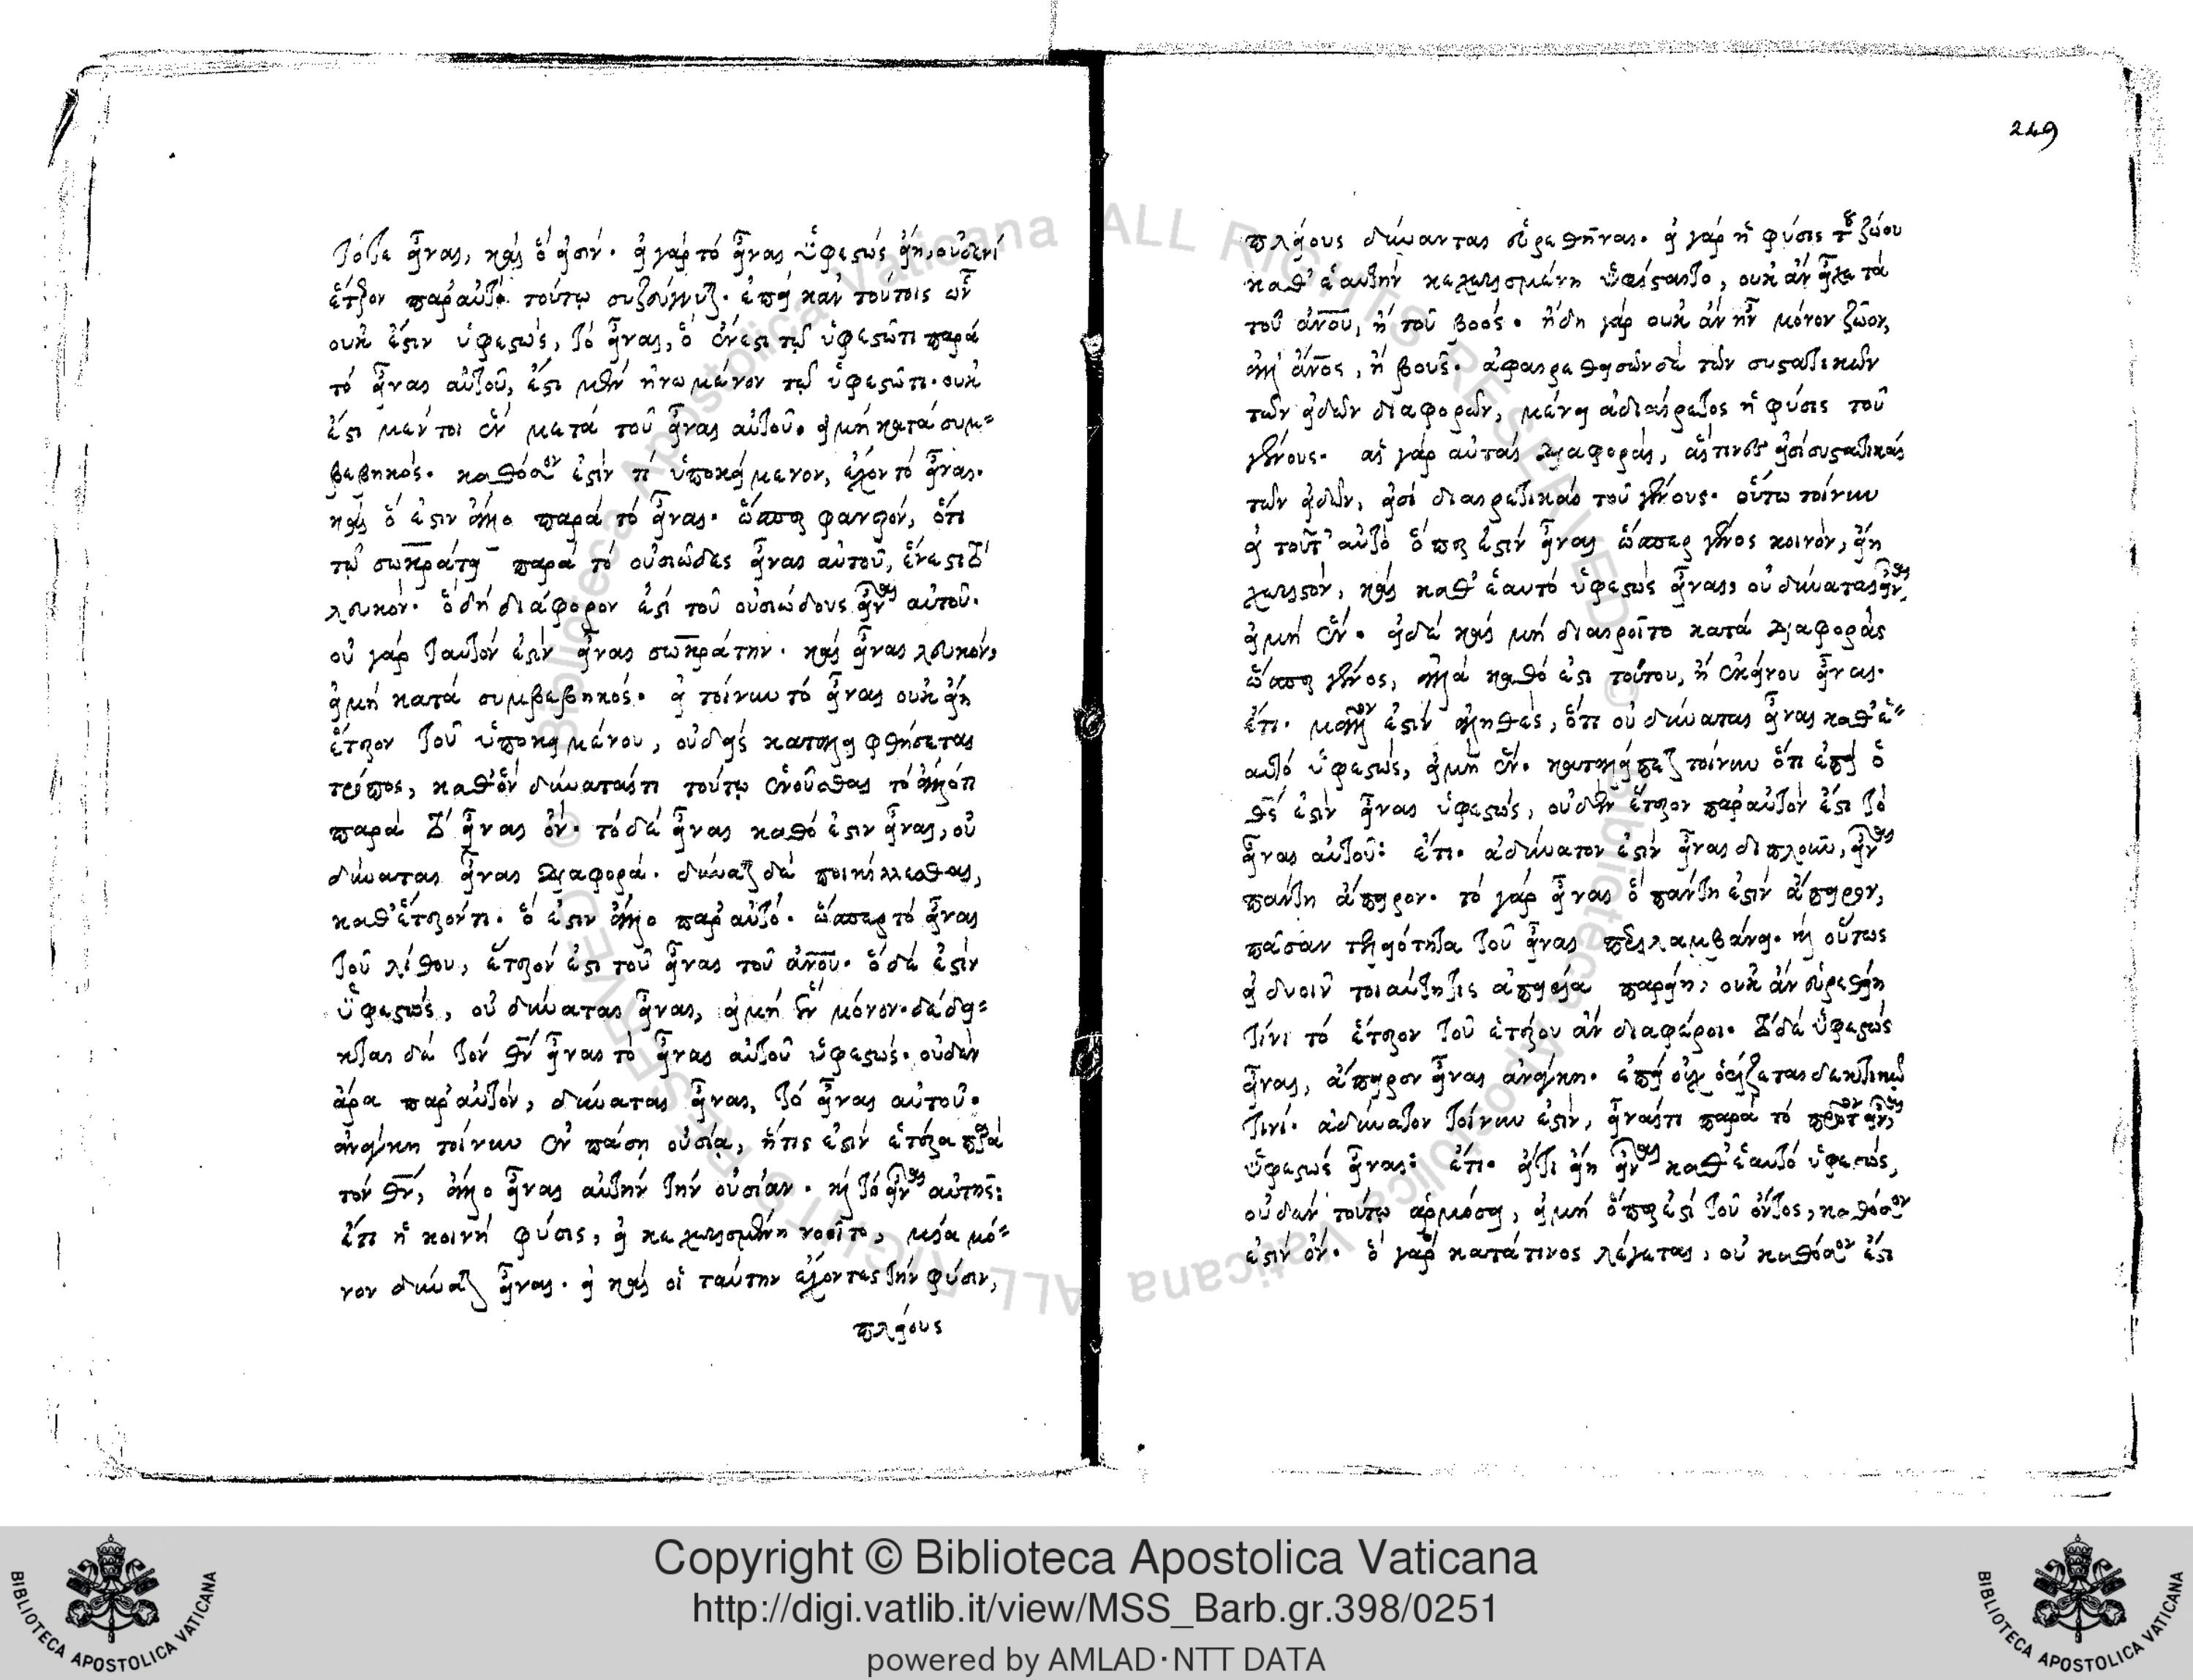 τό, τε εἶναι, καὶ ὅ ἐστιν. εἰ γὰρ τὸ εἶναι ὑφεστὼς εἴη, οὐδενὶ
ἕτερον παρ' αὐτὸ τούτῳ συζεύγνυται. ἐπεὶ κἂν τούτοις ὧν
οὐκ ἔστιν ὑφεστὼς, τὸ εἶναι, ὃ ἔνεστι τῷ ὑφεστῶτι παρὰ
τὸ εἶναι αὐτοῦ, ἔστι μὲν ἡνωμένον τῷ ὑφεστῶτι. οὐκ
ἔστι μέντοι ἓν μετὰ τοῦ εἶναι αὐτοῦ. εἰμὴ κατὰ συμ=
βεβηκός. καθόσον ἐστίν τι ὑποκείμενον, ἔχον τὸ εἶναι.
καὶ ὅ ἐστιν ἄλλο παρὰ τὸ εἶναι. ὥσπερ φανερὸν, ὅτι
τῷ σωκράτει παρὰ τὸ οὐσιῶδες εἶναι αὐτοῦ, ἔνεστι τὸ
λευκόν. ὃ δὴ διάφορον ἐστὶ τοῦ οὐσιώδους εἶναι αὐτοῦ.
οὐ γὰρ ταυτόν ἐστιν εἶναι σωκράτην. καὶ εἶναι λευκὸν,
εἰμὴ κατὰ συμβεβηκός. εἰ τοίνυν τὸ εἶναι οὐκ εἴη
ἕτερον τοῦ ὑποκειμένου, οὐδεὶς καταλειφθήσεται
τρόπος, καθ' ὃν δύναταί τι τούτῳ ἑνοῦσθαι τὸ ἄλλό τι
παρὰ τὸ εἶναι ὄν. τὸ δὲ εἶναι καθό ἐστιν εἶναι, οὐ
δύναται εἶναι διαφορά. δύναται δὲ ποικίλλεσθαι,
καθ' ἕτερόν τι. ὅ ἐστιν ἄλλο παρ' αὐτό. ὥσπερ τὸ εἶναι
τοῦ λίθου, ἕτερόν ἐστι τοῦ εἶναι τοῦ ἀνου. ὃ δέ ἐστιν
ὑφεστὼς, οὐ δύναται εἶναι, εἰμὴ ἓν μόνον. δέδει=
κται δὲ τὸν θν εἶναι τὸ εἶναι αὐτοῦ ὑφεστώς. οὐδὲν
ἄρα παρ' αὐτὸν, δύναται εἶναι, τὸ εἶναι αὐτοῦ.
ἀνάγκη τοίνυν ἐν πάσῃ οὐσίᾳ, ἥτις ἐστὶν ἑτέρα παρὰ
τὸν θν, ἄλλο εἶναι αὐτὴν τὴν οὐσίαν. καὶ τὸ εἶναι αὐτῆς:
ἔτι ἡ κοινὴ φύσις, εἰ κεχωρισμένη νοοῖτο, μία μό=
νον δύναται εἶναι. εἰ καὶ οἱ ταύτην ἔχοντες τὴν φύσιν,
πλείους
249
πλείους δύνανται εὑρεθῆναι. εἰ γὰρ ἡ φύσις τοῦ ζώου
καθ' ἑαυτὴν κεχωρισμένη ὑφίσταιτο, οὐκ ἂν εἶχε τὰ
τοῦ ἀνου, ἢ τοῦ βοός. ἤδη γὰρ οὐκ ἂν ἦν μόνον ζῶον,
ἀλλ' ἄνος, ἢ βοῦς. ἀφαιρεθησῶν δὲ τῶν συστατικῶν
τῶν εἰδῶν διαφορῶν, μένει ἀδιαίρετος ἡ φύσις τοῦ
γένους. αἱ γὰρ αὐταὶ διαφοραὶ, αἵτινες εἰσὶ συστατικαὶ
τῶν εἰδῶν, εἰσὶ διαιρετικαὶ τοῦ γένους. οὕτω τοίνυν
εἰ τοῦτ' αὐτὸ ὅπερ ἐστὶν εἶναι ὥσπερ γένος κοινὸν, εἴη
χωριστὸν, καὶ καθ' ἑαυτὸ ὑφεστὼς εἶναι, οὐ δύναται εἶναι,
εἰμὴ ἕν. εἰ δὲ καὶ μὴ διαιροῖτο κατὰ διαφορὰς
ὥσπερ γένος, ἀλλὰ καθό ἐστι τούτου, ἢ ἐκείνου εἶναι.
ἔτι μᾶλλον ἐστὶν ἀληθὲς, ὅτι οὐ δύναται εἶναι καθ' ἑ=
αυτὸ ὑφεστὼς, εἰμὴ ἕν. καταλείπεται τοίνυν ὅτι ἐπεὶ ὁ
θς ἐστὶν εἶναι ὑφεστὼς, οὐδὲν ἕτερον παρ' αὐτὸν ἐστι τὸ
εἶναι αὐτοῦ: ἔτι. ἀδύνατον ἐστὶν εἶναι διπλοῦν, εἶναι
πάντῃ ἄπειρον. τὸ γὰρ εἶναι ὃ πάντῃ ἐστὶν ἄπειρον,
πᾶσαν τελειότητα τοῦ εἶναι περιλαμβάνει. καὶ οὕτως
εἰ δυοῖν τοιαύτη τις ἀπειρία παρείη, οὐκ ἂν εὑρεθείη
τίνι τὸ ἕτερον τοῦ ἑτέρου ἂν διαφέροι. τὸ δὲ ὑφεστὼς
εἶναι, ἄπειρον εἶναι ἀνάγκη. ἐπεὶ οὐχ ὁρίζεται δεκτικῷ
τινί. ἀδύνατον τοίνυν ἐστὶν, εἶναί τι παρὰ τὸ πρῶτον εἶναι,
ὑφεστὼς εἶναι: ἔτι. εἴτι εἴη εἶναι καθ' ἑαυτὸ ὑφεστὼς,
οὐδὲν τούτῳ ἁρμόσει, εἰμὴ ὅπερ ἐστὶ τοῦ ὄντος, καθόσον
ἐστὶν ὄν. ὃ γὰρ κατά τινος λέγεται, οὐ καθόσον ἐστι
Copyright © Biblioteca Apostolica Vaticana
http://digi.vatlib.it/view/MSS_Barb.gr.398/0251
powered by AMLAD·NTT DATA